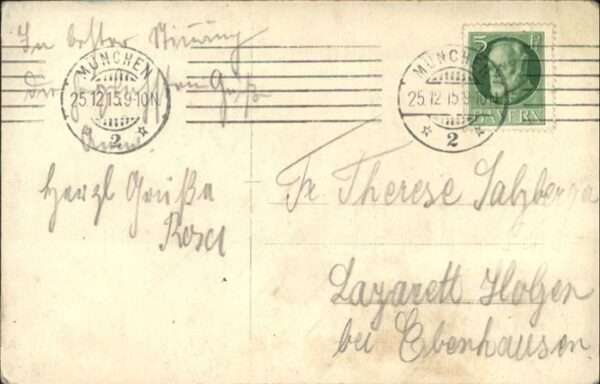 In bester Stimmung
Die
Grüße
MÜNCHEN
25.12.15.9-10N
2
Herzl Grüße
Resi
MÜNCHEN
25.12.15.9-10N
2
5 PF
BAYERN
Fr. Therese Salzberger
Lazarett Holzen
bei Ebenhausen